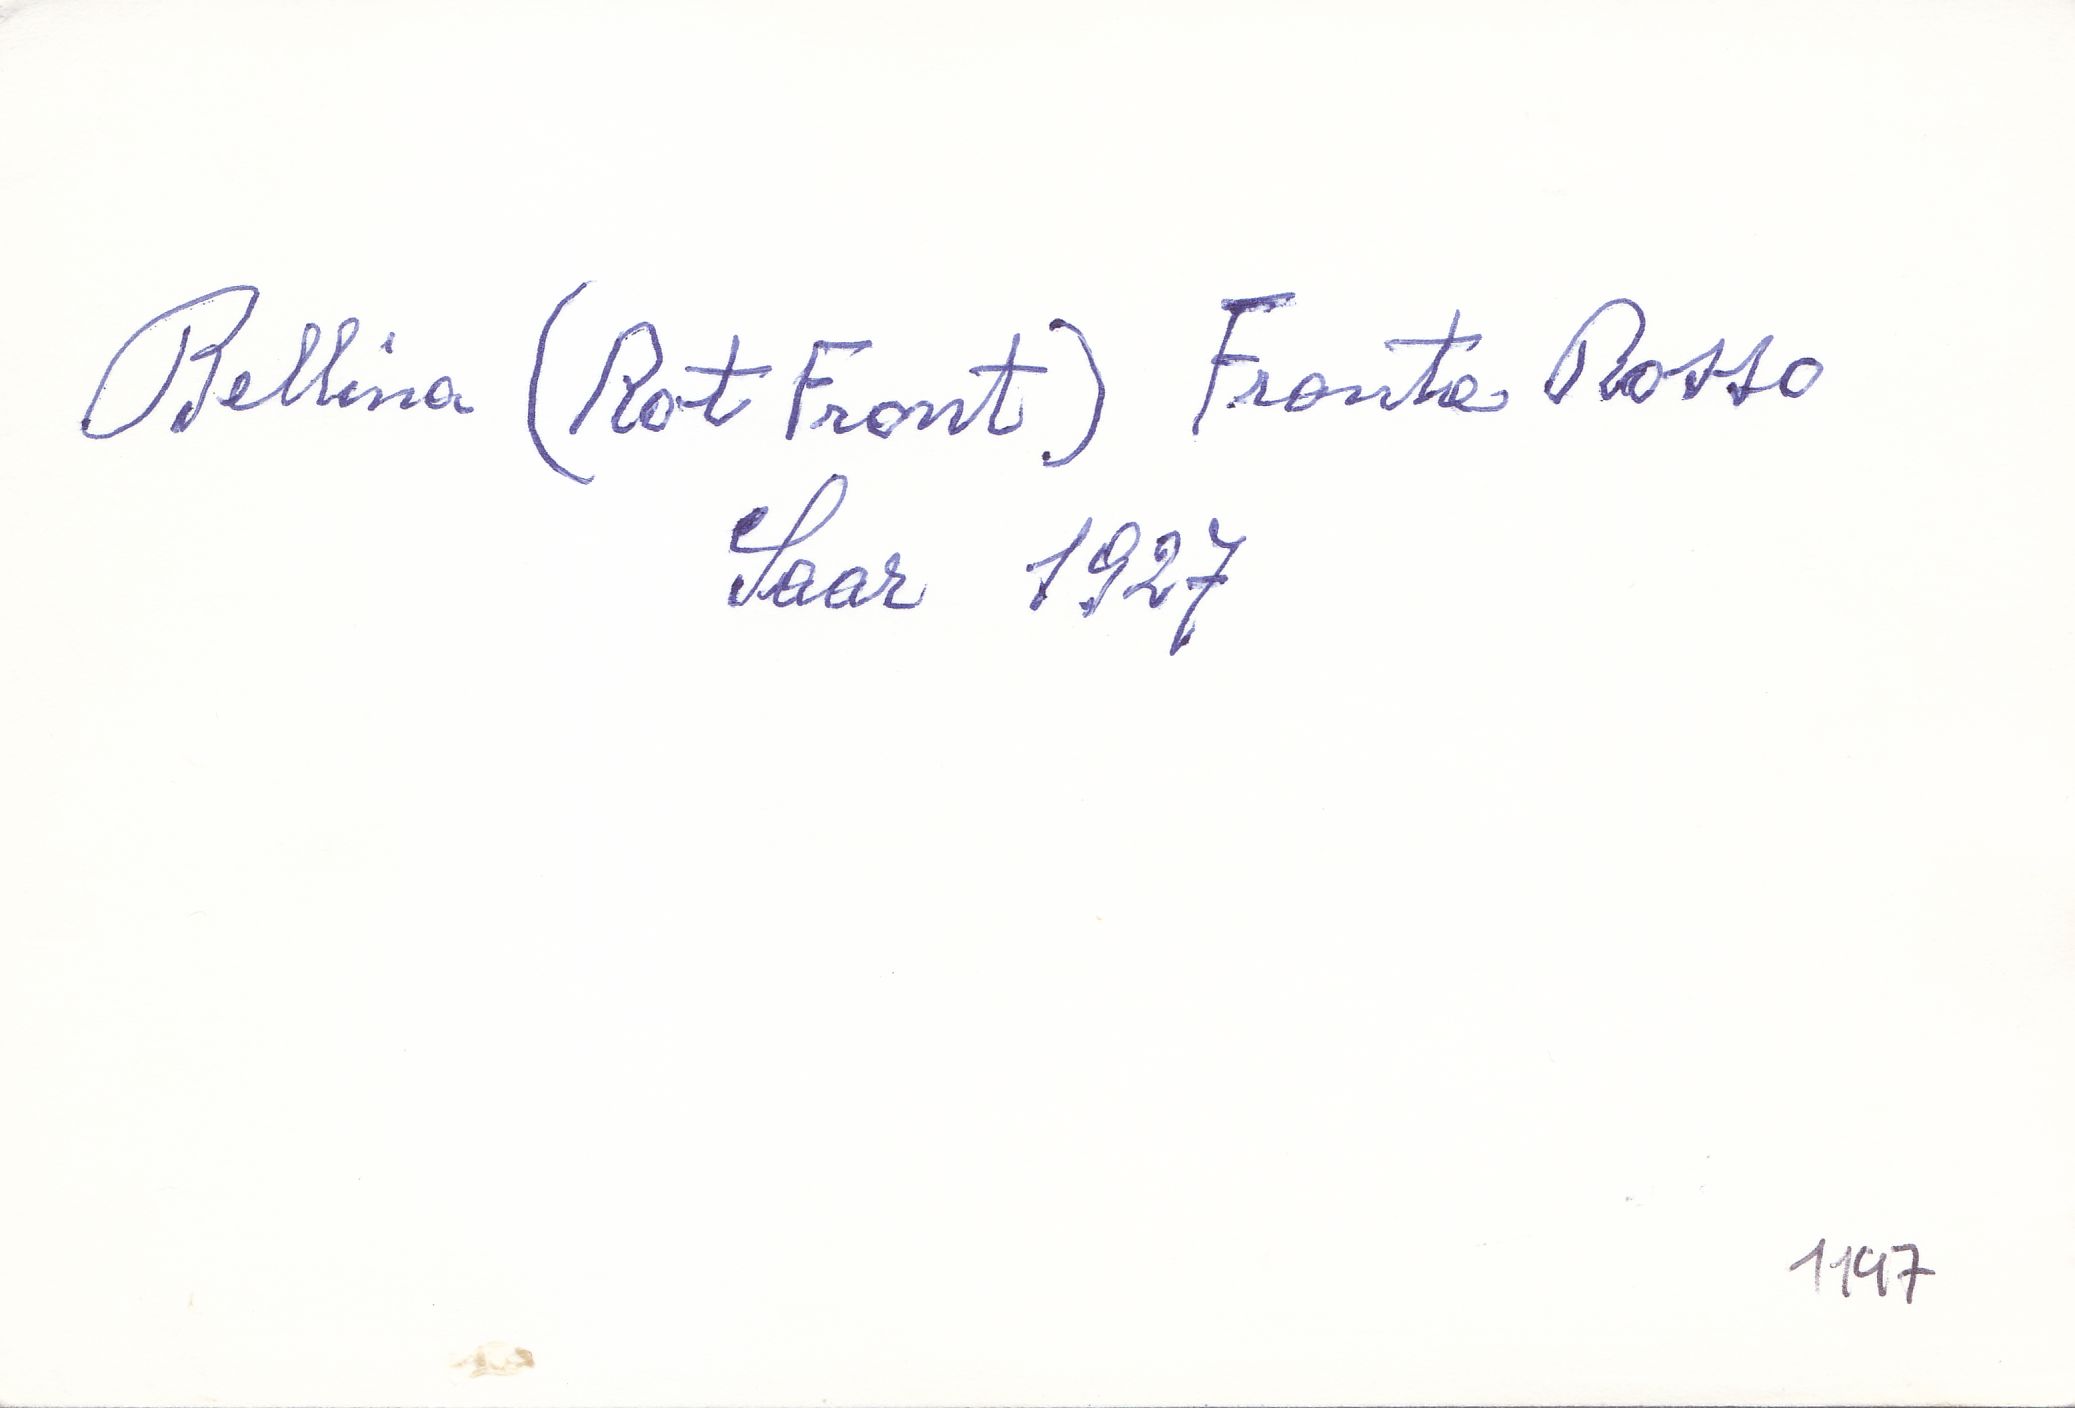 Bellina (Rot Front) Fronte Rosso
Saar 1927
1147